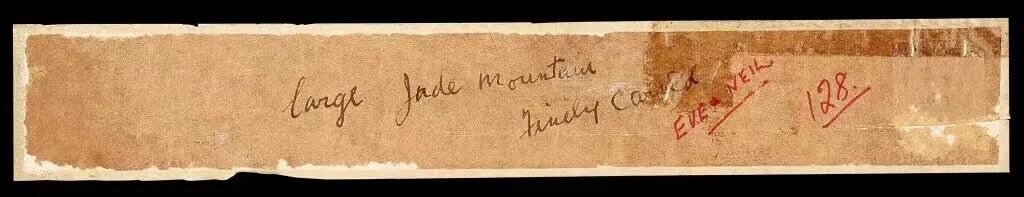 Large Jade Mountain
Finely Carved
EVE & NEIL
128.